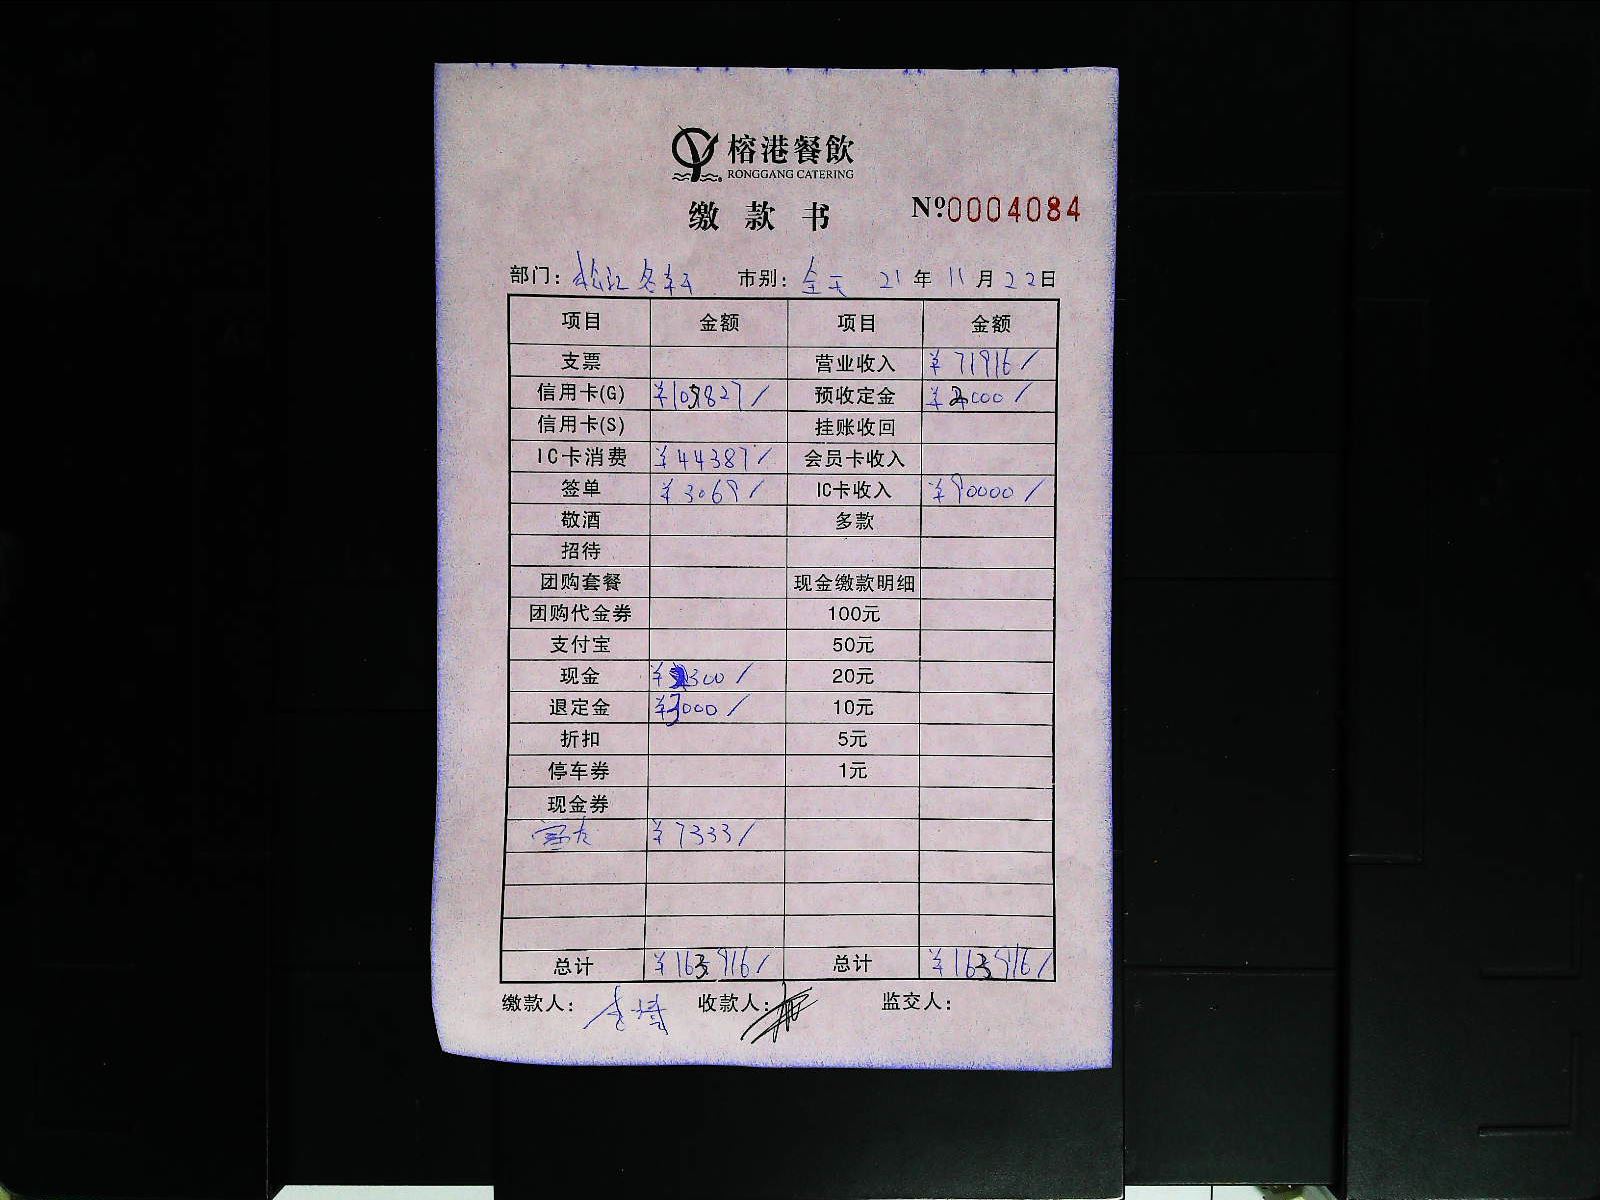 榕港餐飲
RONGGANG CATERING
缴款书
Nº0004084
部门: 松江 市别: 全天 21年11月22日
项目 金额 项目 金额
支票 营业收入 ¥71916/
信用卡(G) ¥105827/ 预收定金 ¥2000/
信用卡(S) 挂账收回
IC卡消费 ¥44387/ 会员卡收入
签单 ¥3069/ IC卡收入 ¥90000/
敬酒 多款
招待
团购套餐 现金缴款明细
团购代金券 100元
支付宝 50元
现金 ¥300/ 20元
退定金 ¥3000/ 10元
折扣 5元
停车券 1元
现金券
¥7333/
总计 ¥163916/ 总计 ¥163916/
缴款人: 收款人: 监交人: